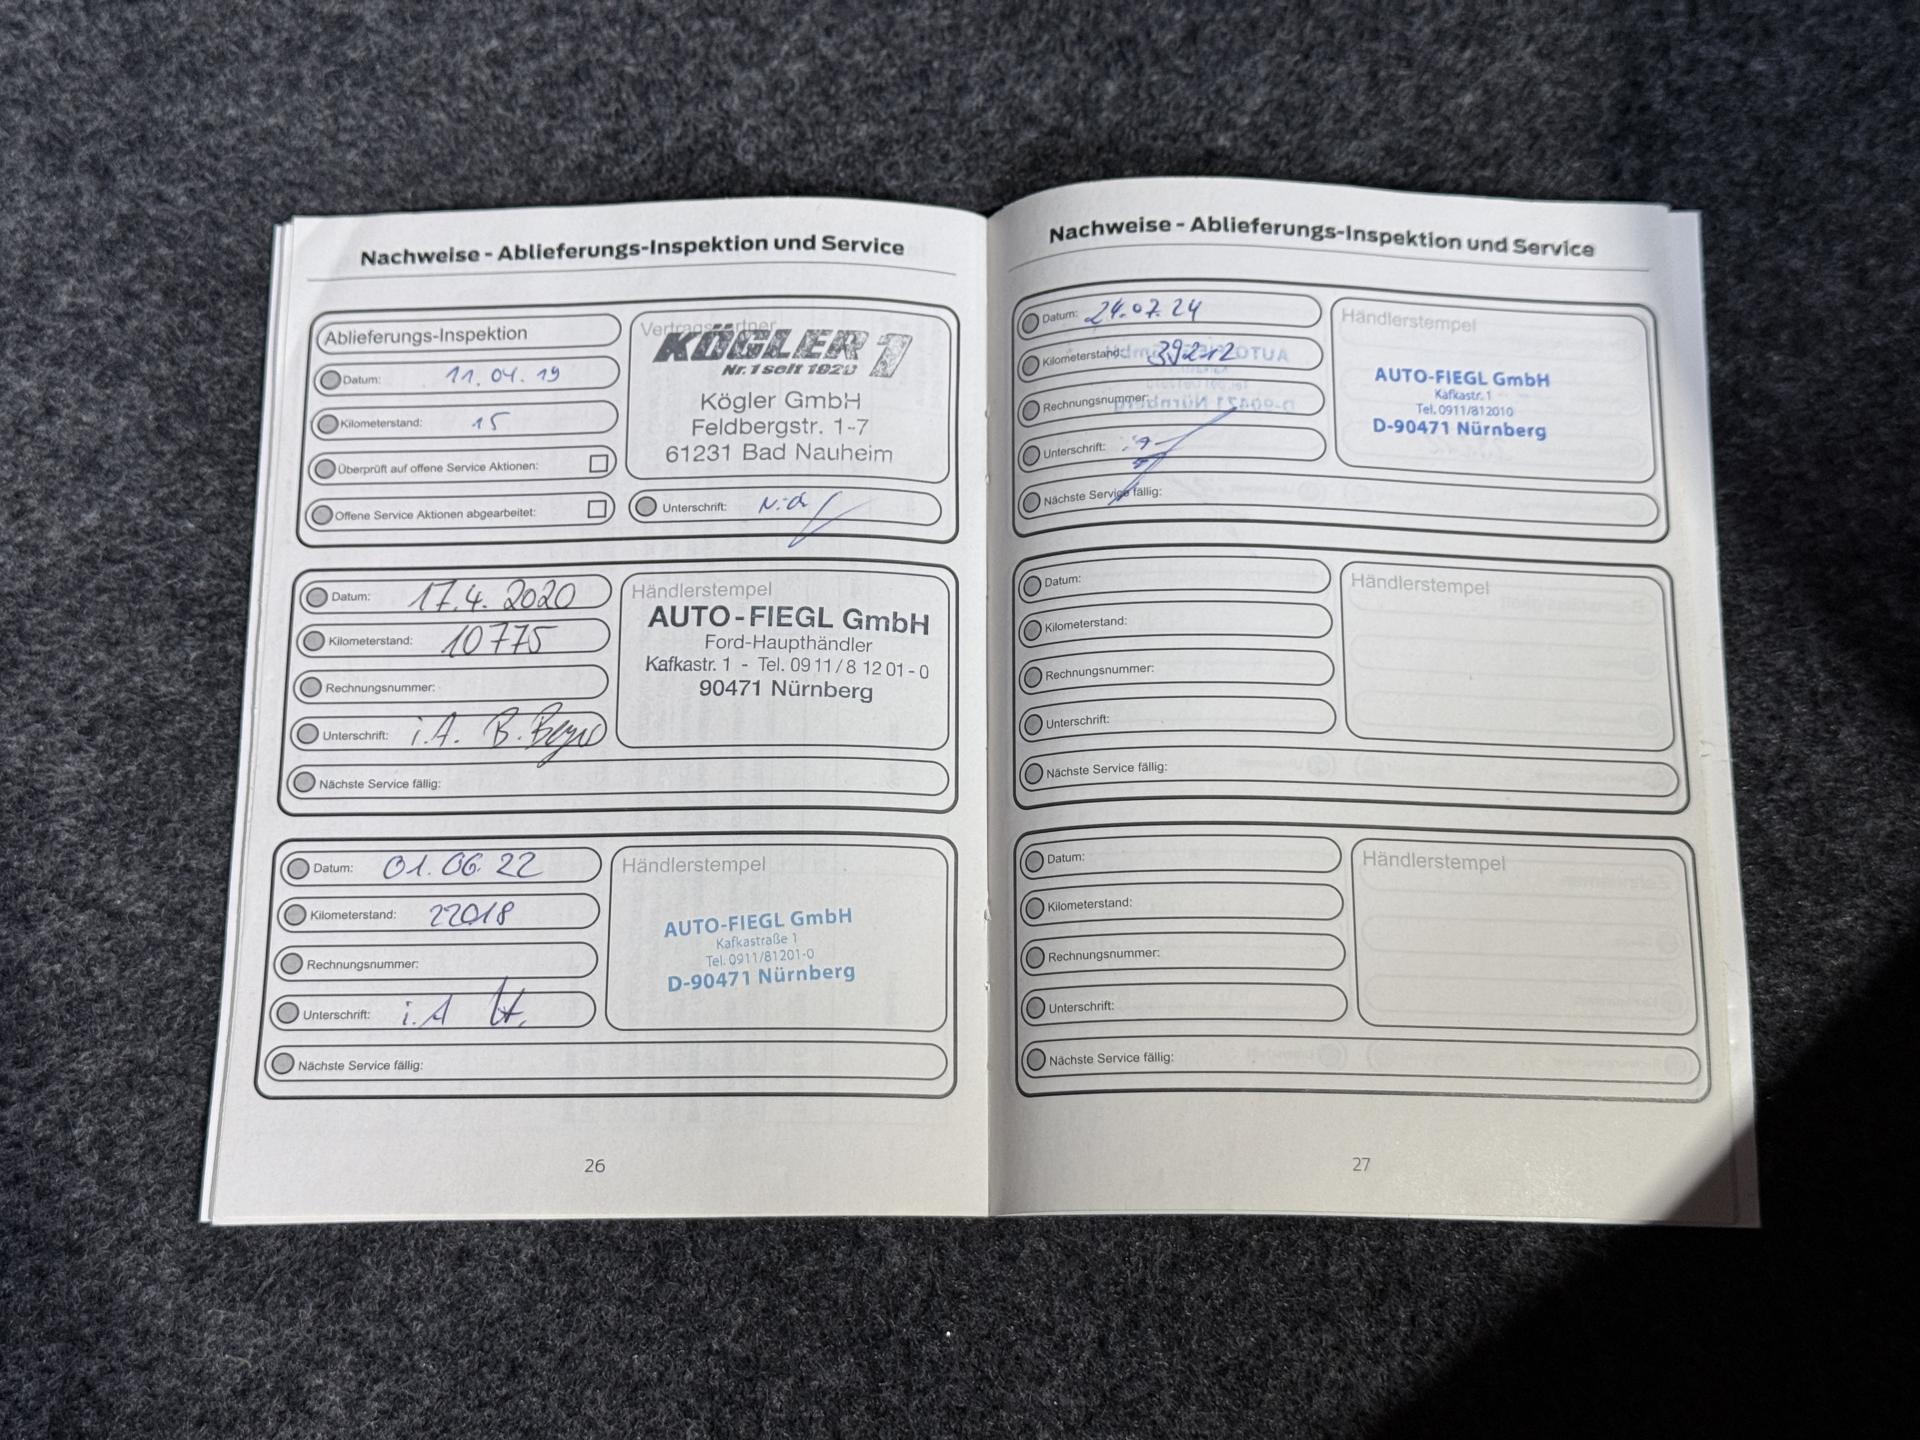 Nachweise - Ablieferungs-Inspektion und Service
Ablieferungs-Inspektion
Datum: 11.04.19
Kilometerstand: 15
Überprüft auf offene Service Aktionen:
Offene Service Aktionen abgearbeitet:
Vertragspartner
KÖGLER 1
Nr. 1 seit 1920
Kögler GmbH
Feldbergstr. 1-7
61231 Bad Nauheim
Unterschrift:
Datum: 17.4. 2020
Kilometerstand: 10775
Rechnungsnummer:
Unterschrift: i.A. B.
Nächste Service fällig:
Händlerstempel
AUTO-FIEGL GmbH
Ford-Haupthändler
Kafkastr. 1 - Tel. 09 11 / 8 12 01 - 0
90471 Nürnberg
Datum: 01.06.22
Kilometerstand: 22018
Rechnungsnummer:
Unterschrift: i.A
Nächste Service fällig:
Händlerstempel
AUTO-FIEGL GmbH
Kafkastraße 1
Tel. 0911/81201-0
D-90471 Nürnberg
26
Nachweise - Ablieferungs-Inspektion und Service
Datum: 24.07.24
Kilometerstand: 39212
Rechnungsnummer:
Unterschrift:
Nächste Service fällig:
Händlerstempel
AUTO-FIEGL GmbH
Kafkastr. 1
Tel. 0911/812010
D-90471 Nürnberg
Datum:
Kilometerstand:
Rechnungsnummer:
Unterschrift:
Nächste Service fällig:
Händlerstempel
Datum:
Kilometerstand:
Rechnungsnummer:
Unterschrift:
Nächste Service fällig:
Händlerstempel
27